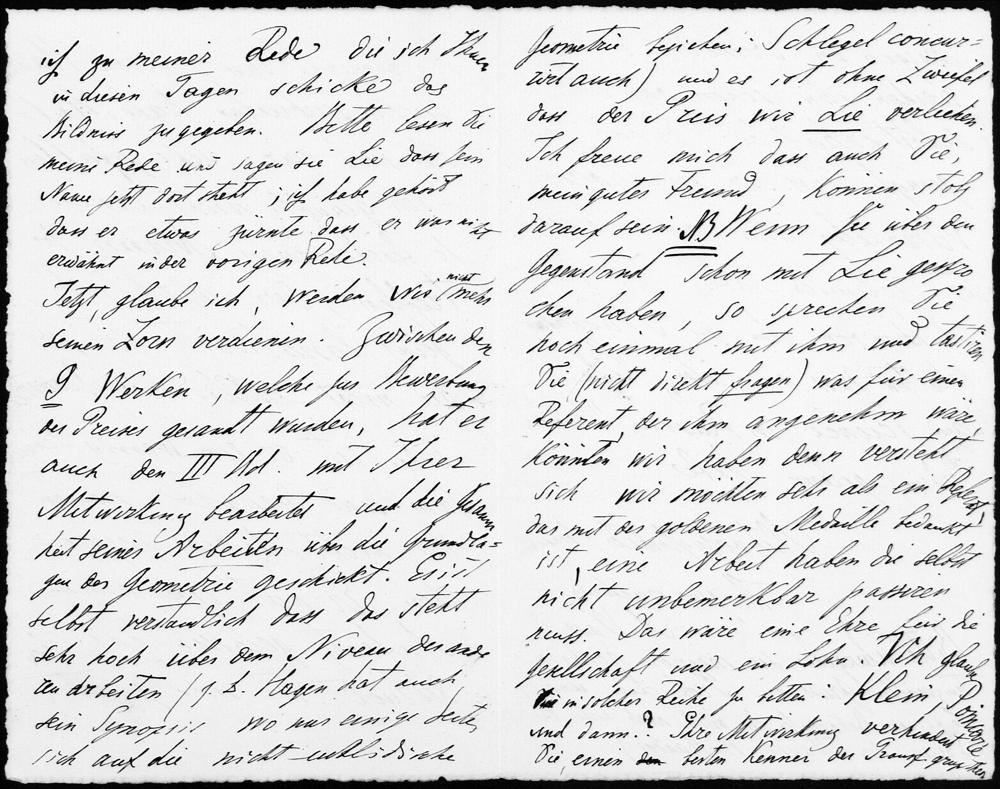 ich zu meiner Rede die ich Ihnen
in diesen Tagen schicke das
Bildniss zugegeben. Bitte lesen Sie
meine Rede und sagen sie Lie dass sein
Name jetzt dort steht; ich habe gehört
dass er etwas zürnte dass er war nicht
erwähnt in der vorigen Rede.
Jetzt, glaube ich, werden wir nicht mehr
seinen Zorn verdienen. Zwischen den
9 Werken, welche zur Bewerbung
des Preises gesandt wurden, hat er
auch den III Bd. mit Ihrer
Mitwirkung bearbeitet und die Gesamm
heit seines Arbeiten über die Grundla=
gen der Geometrie geschickt. Es ist
selbst verständlich dass das steht
sehr hoch über dem Niveau der ande
ren Arbeiten (z. B. Hagen hat auch
sein Synopsis wo nur einige Seiten
sich auf die nicht-euklidische
Geometrie beziehen; Schlegel concur=
rirt auch) und es ist ohne Zweifel
dass der Preis wir Lie verleihen.
Ich freue mich dass auch Sie,
mein guter Freund, können stolz
darauf sein. NB Wenn Sie über den
Gegenstand schon mit Lie gespro
chen haben, so sprechen Sie
noch einmal mit ihm und tastiren
Sie (nicht direkt fragen) was für einen
Referent, der ihm angenehm wäre,
könnten wir haben denn versteht
sich wir möchten sehr als ein Referat,
das mit der goldenen Medaille bedankt
ist, eine Arbeit haben die selbst
nicht unbemerkbar passiren
muss. Das wäre eine Ehre für die
Gesellschaft und ein Lohn. Ich glaube
in solcher Reihe zu bitten: Klein, Poincaré
und dann?? Ihre Mitwirkung verhindert
Sie, einen besten Kenner der Transf. gruppen